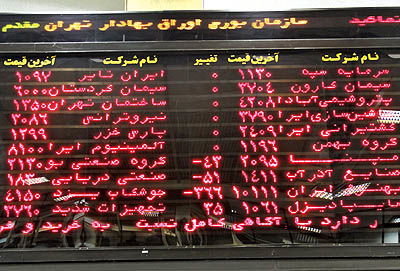 نماعید سازمان بورس اوراق بهادار تهران مقدم
نام شرکت آخرین قیمت تغییر نام شرکت آخرین قیمت
سرمایه سپه ۱۱۳۰ ۰ ایران تایر ۱۰۹۲
سیمان کارون ۲۷۰۴ ۰ سیمان کردستان ۶۰۰۰
پتروشیمی آباد ۴۲۰۸ ۰ ساختمان تهران ۱۳۵۰
۲۷۹۰ ۰ نیروترانس ۲۰۸۶
کشتیرانی ایرا ۲۴۰۹ ۰ پارس خزر ۱۲۹۹
گروه بهمن ۱۱۹۶ ۰ آلمینیوم ایرا ۸۱۰۰
۲۰۹۵ ۴۳- گروه صنعتی بو ۲۱۳۰
صنایع آذرآب ۱۴۱۱ ۵۱- صنعتی دریایی
۱۰۱۱۱ ۳۶۶- جوشکاب ۴۱۵۰
۱۰۲۱ ۳۵ تجهیزات سدید ۲۷۹۰
ر دارد با آگاهی کامل نسبت به خرید و فر